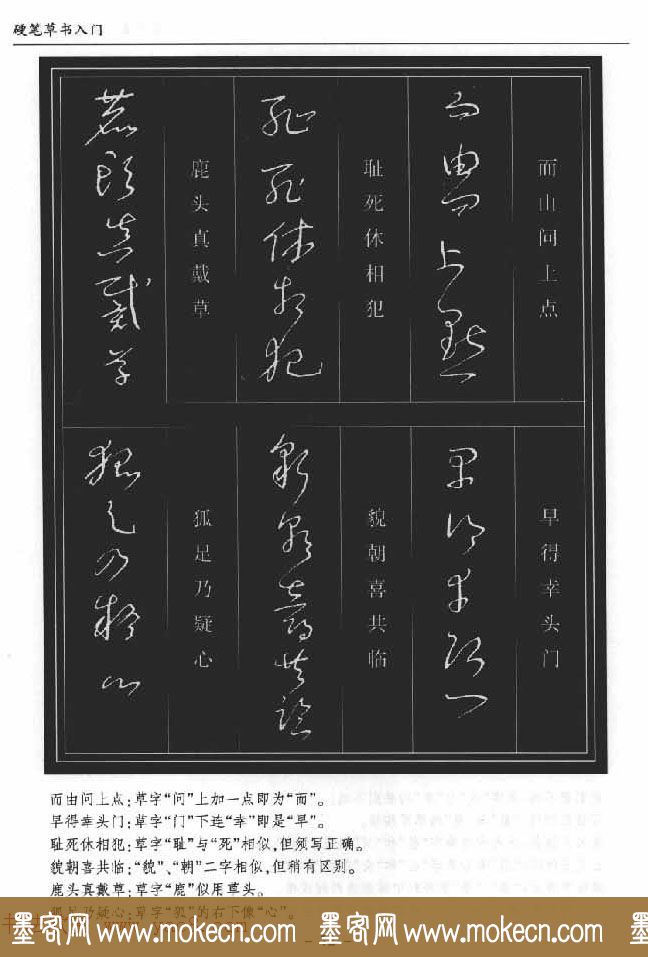 硬笔草书入门
而山问上点
而由问上点
耻死休相犯
耻死休相犯
鹿头真戴草
鹿头真戴草
早得幸头门
早得幸头门
貌朝喜共临
貌朝喜共临
狐足乃疑心
狐足乃疑心
而由问上点:草字“问”上加一点即为“而”。
早得幸头门:草字“门”下连“幸”即是“早”。
耻死休相犯:草字“耻”与“死”相似,但须写正确。
貌朝喜共临:“貌”、“朝”二字相似,但稍有区别。
鹿头真戴草:草字“鹿”似用草头。
狐足乃疑心:草字“狐”的右下像“心”。
墨客网 www.mokecn.com 墨客网 www.mokecn.com